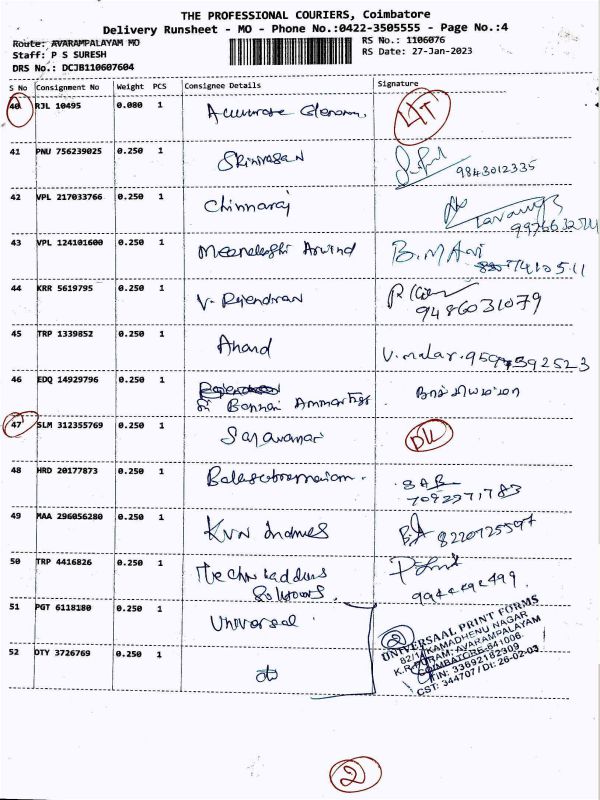 THE PROFESSIONAL COURIERS, Coimbatore
Delivery Runsheet - MO - Phone No.:0422-3505555 - Page No.:4
Route: AVARAMPALAYAM MO RS No.: 1106076
Staff: P S SURESH RS Date: 27-Jan-2023
DRS No.: DCJB110607604
S No Consignment No Weight PCS Consignee Details Signature
40 RJL 10495 0.080 1
41 PNU 756239025 0.250 1 Srinivasan 9843012335
42 VPL 217033766 0.250 1 Chinnaraj
43 VPL 124101600 0.250 1 Meenakshi Arvind B.MAni
44 KRR 5619795 0.250 1 V. Rajendran 9486031079
45 TRP 1339852 0.250 1 Anand V.malar.
46 EDQ 14929796 0.250 1
Sri Bannari Amman
47 SLM 312355769 0.250 1 Saravanan
48 HRD 20177873 0.250 1 Balasubramaniam.
7092971783
49 MAA 296056280 0.250 1 KVN 8220725597
50 TRP 4416826 0.250 1
Solutions. 9944492499.
51 PGT 6118180 0.250 1 Universal
52 OTY 3726769 0.250 1 do
2
UNIVERSAAL PRINT FORMS
82/1 KAMADHENU NAGAR
K.R.PURAM, AVARAMPALAYAM
COIMBATORE-641006.
TIN: 33692182309
CST: 344707 / Dt: 26-02-03
2